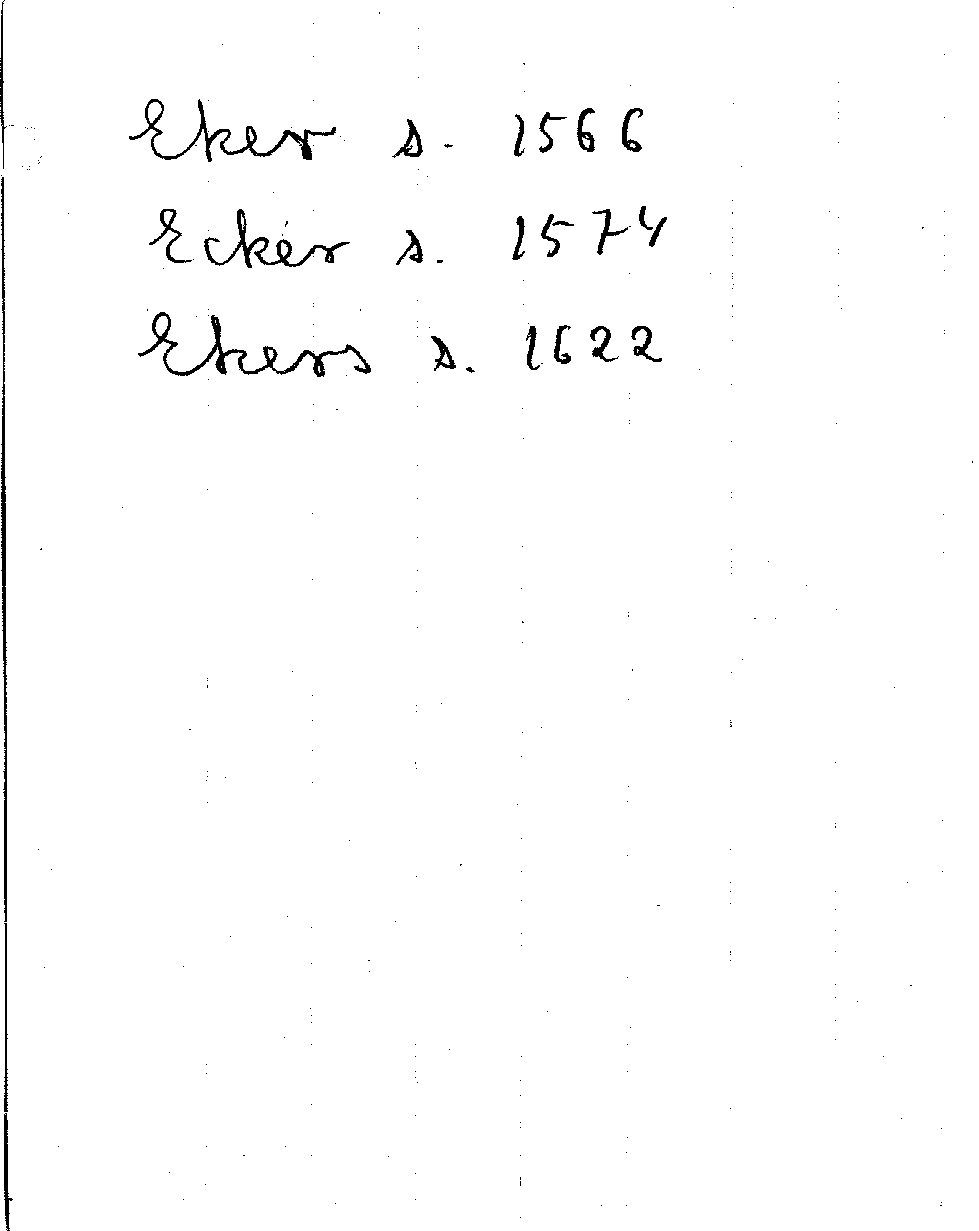 Eker s. 1566
Ecker s. 1574
Ekers s. 1622